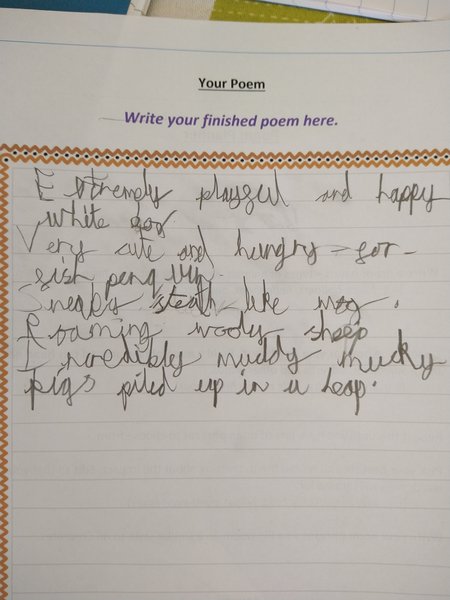 Your Poem
Write your finished poem here.
Extremely playful and happy
white
Very cute and hungry - for -
fish penguin.
Sneaky stealth like mog.
Roaming wooly sheep
Incredibly muddy mucky
pigs piled up in a heap.